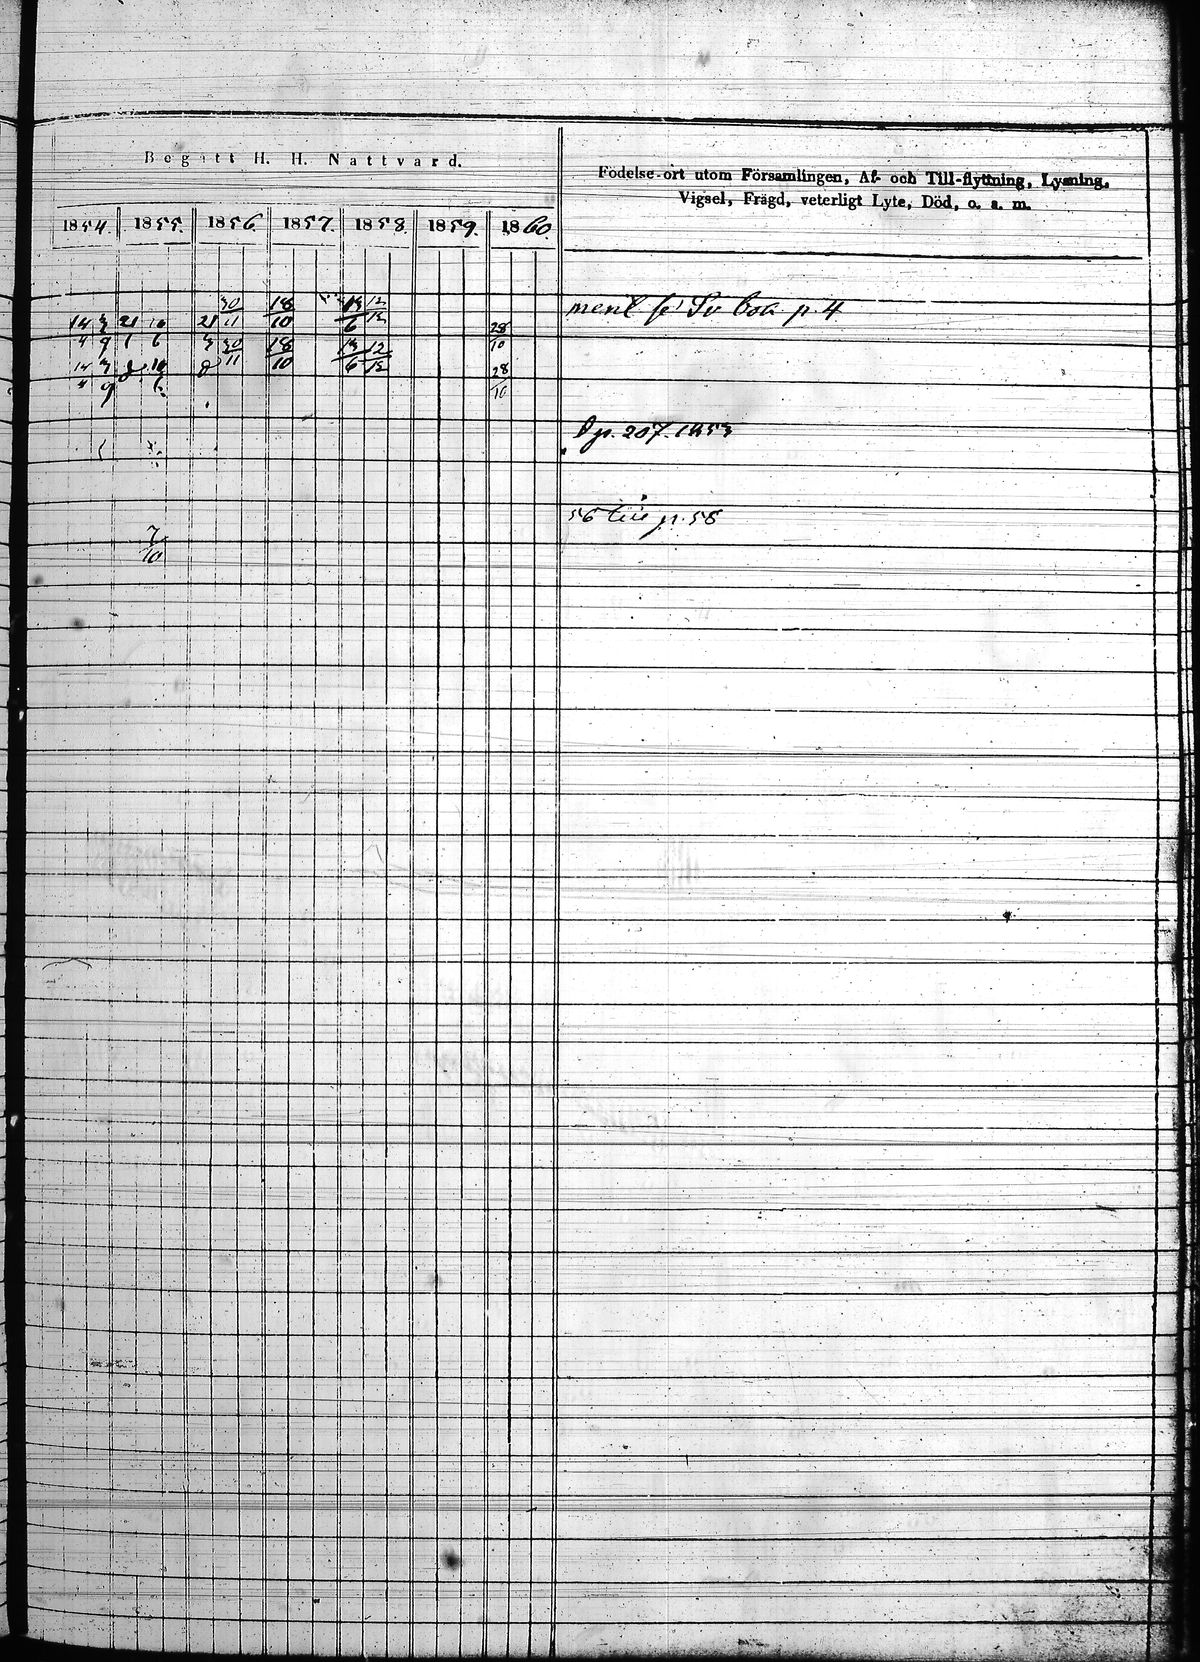 Begått H. H. Nattvard.
Födelse-ort utom Församlingen, Af- och Till-flyttning, Lysning,
Vigsel, Frägd, veterligt Lyte, Död, o. a. m.
1854. 1855. 1856. 1857. 1858. 1859. 1860.
30 18 13 12
14 3 21 10 21 11 10 6 12 28
4 9 1 6 3 30 18 13 12 10
14 3 10 11 10 6 12 28
4 9 6 10
p. 4
p. 207. 1853
56 p. 58
7
10